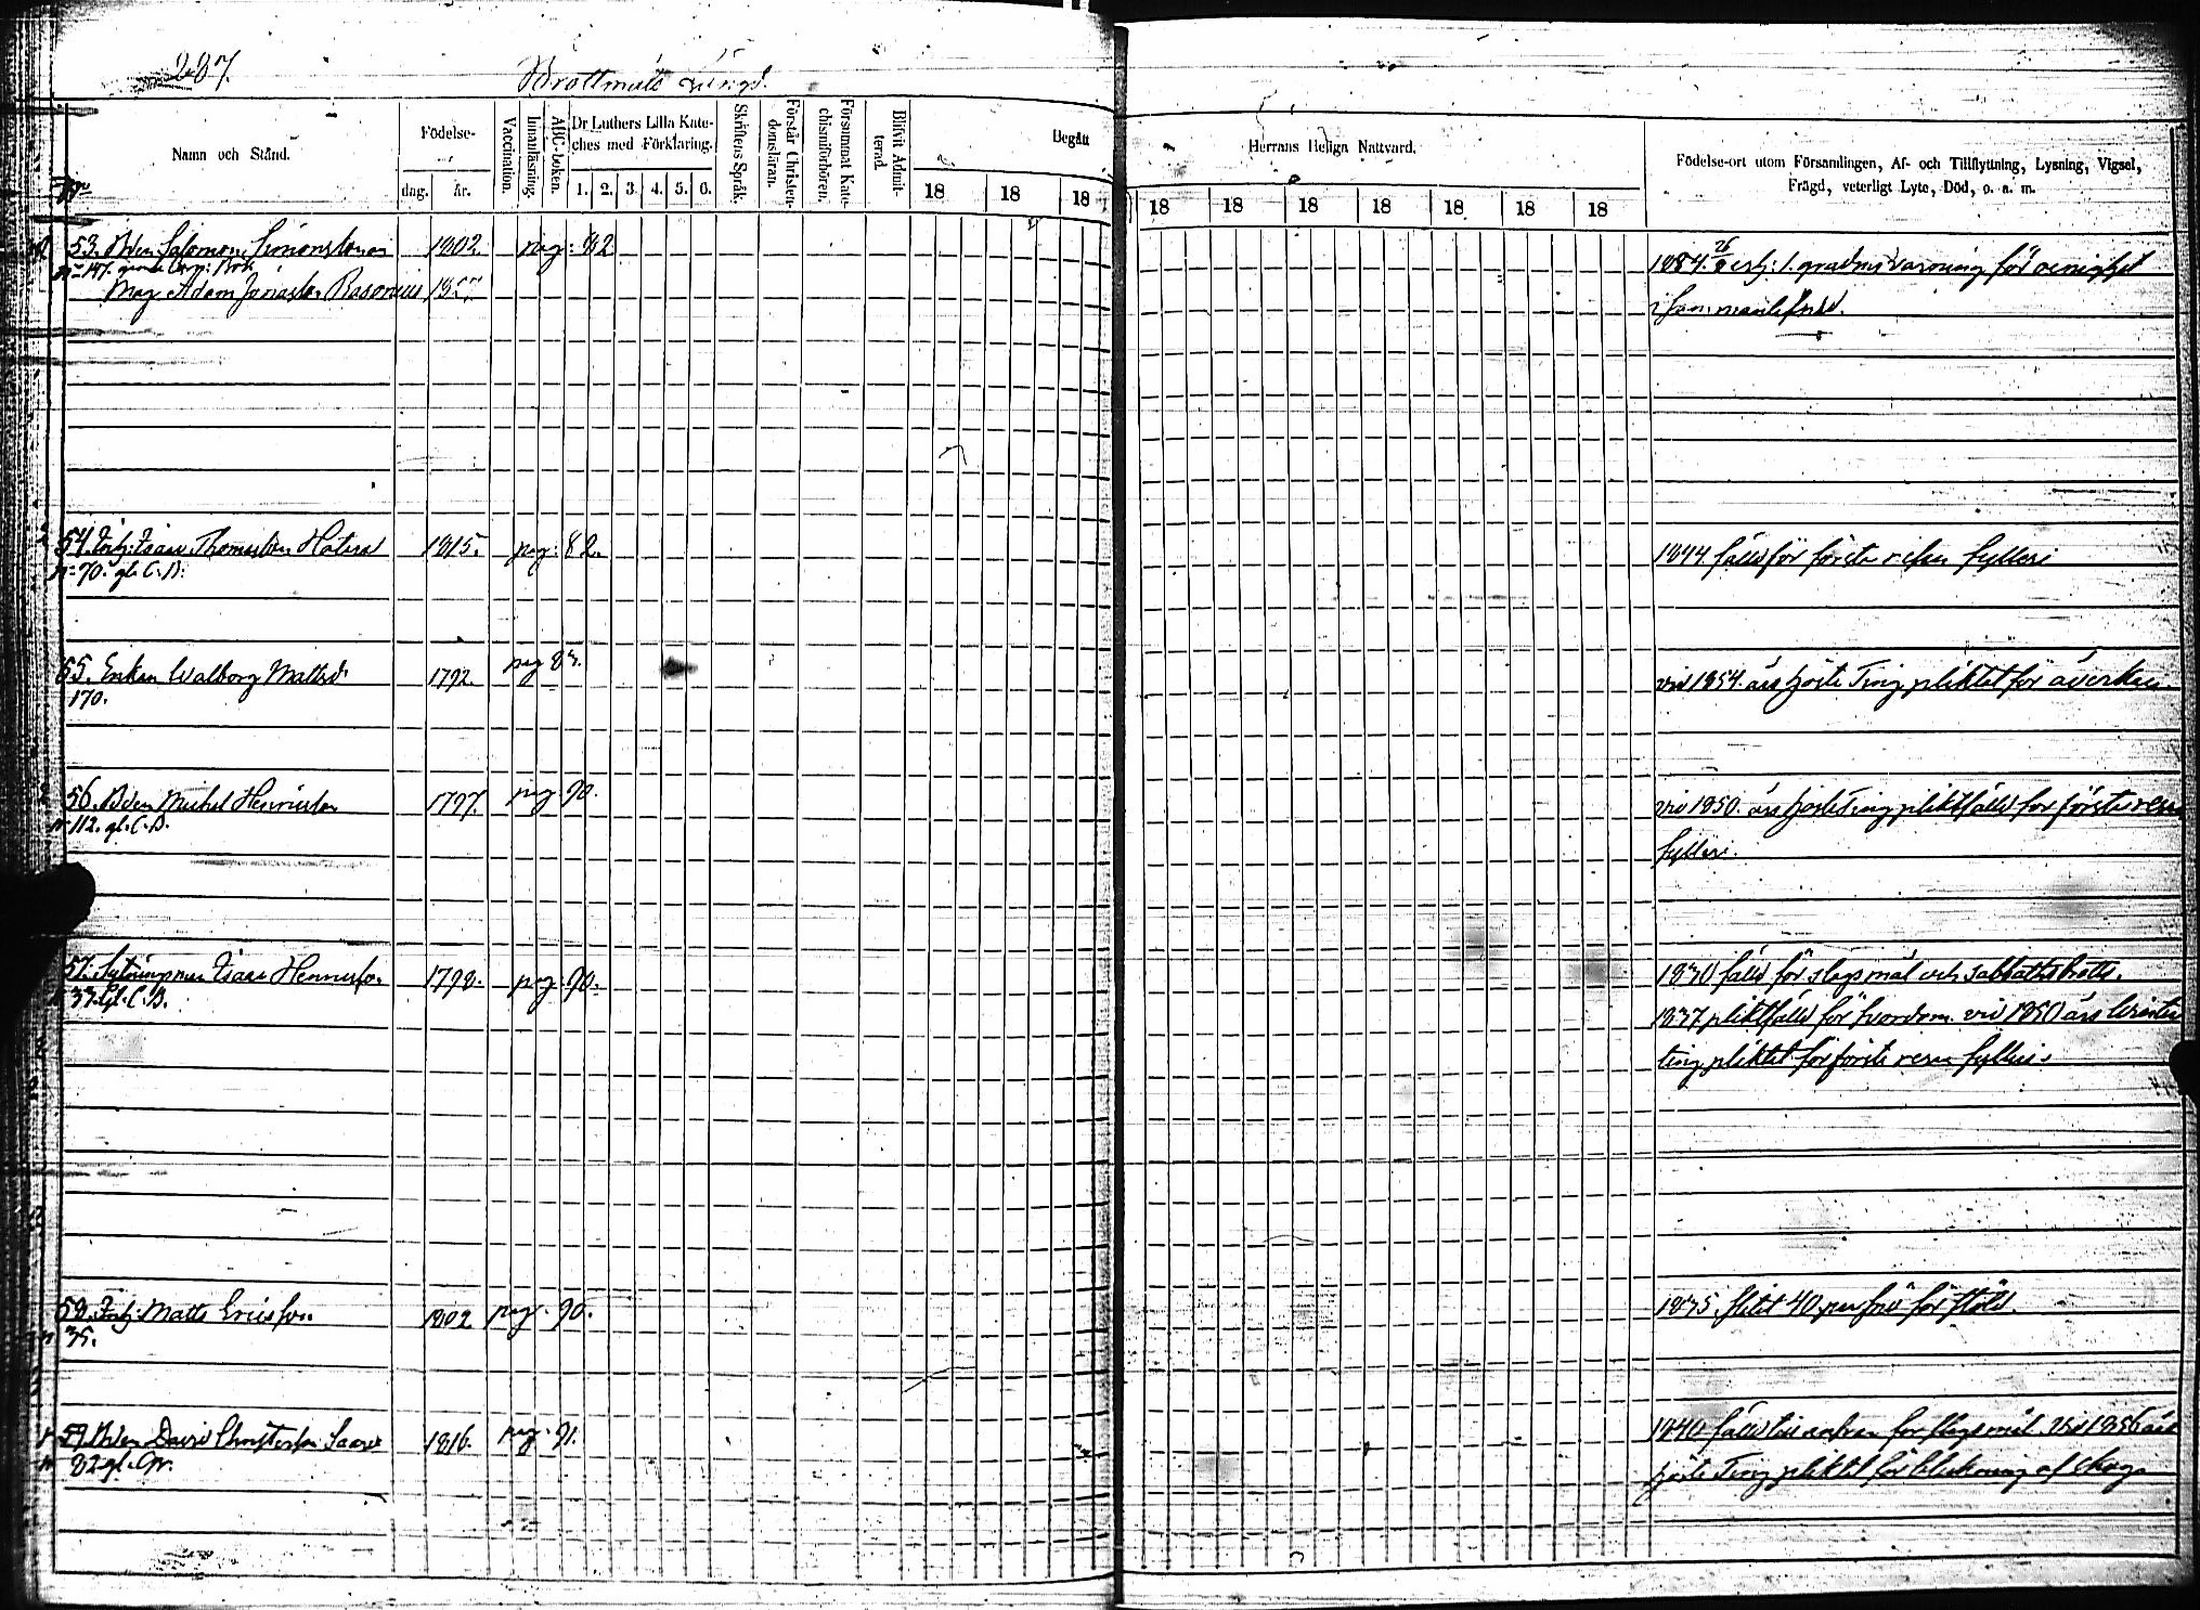 287.
Brottmåls Längd.
Namn och Stånd.
Födelse-
dag. år.
Vaccination.
Innanläsning.
ABC-boken.
Dr Luthers Lilla Kate-
ches med Förklaring.
1. 2. 3. 4. 5. 6.
Skriftens Språk.
Förstår Christen-
domsläran.
Försummat Kate-
chismiförhören.
Blifvit Admit-
terad.
Begått
Herrans Heliga Nattvard.
18 18 18 18 18 18 18 18 18 18
Födelse-ort utom Församlingen, Af- och Tillflyttning, Lysning, Vigsel,
Frägd, veterligt Lyte, Död, o. a. m.
53. Salomon Simonsson 1802. pag: 82
Mag Adam Jonasson
1. gradens varning för oenighet
54. Isaac Thomasson 1815. pag: 82.
70. gl. C.B.
1844. fälld för första resan fylleri
55. Enkan Walborg Mattsd. 1792. pag
170.
vid 1854. års höste Ting pliktat för åverkan.
56. Michel Henricsson 1797. pag 90.
112. gl. C.B.
vid 1850. års höste Ting pliktfälld för första resan
fylleri.
57. Isaac Henricsson 1798. pag. 90.
33. gl. C.B.
1830 fälld för slagsmål och sabbathsbrott.
1837 pliktfälld för hvardom. vid 1850 års Winter
ting pliktat för första resan fylleri.
58. Matts Ericsson 1802 pag. 90.
35.
1835. slitit 40 par spö för stöld.
59. David Christersson 1816. pag. 91.
82 gl.
1840 fälld till ansvar för slagsmål. Vid 1856 års
höste Ting pliktat för bleckning af skog.